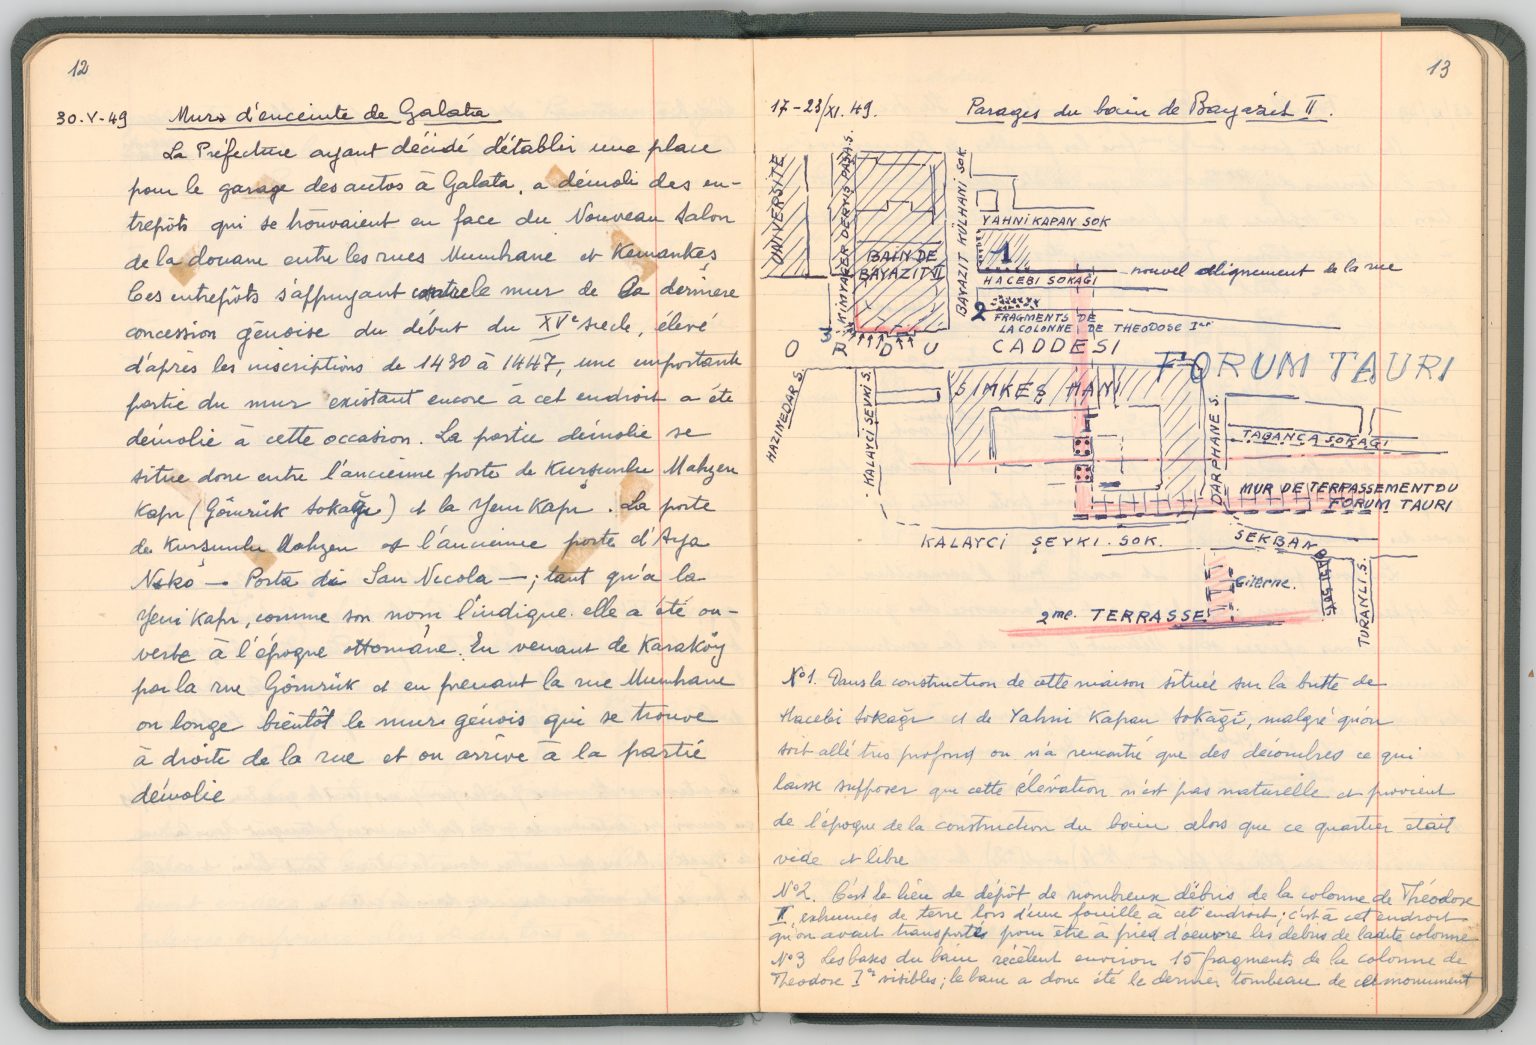 12
30.V-49 Murs d'enceinte de Galata
La Préfecture ayant décidé d'établir une place
pour le garage des autos à Galata, a démoli des en-
trepôts qui se trouvaient en face du Nouveau Salon
de la douane entre les rues Mumhane et Kemankeş
Ces entrepôts s'appuyant contre le mur de la dernière
concession génoise du début du XVe siècle, élevé
d'après les inscriptions de 1430 à 1447, une importante
partie du mur existant encore à cet endroit a été
démolie à cette occasion. La partie démolie se
situe donc entre l'ancienne porte de Kurşunlu Mahzen
Kapı (Gömrük Sokağı) et la Yeni Kapı. La porte
de Kurşunlu Mahzen est l'ancienne porte d'Aya
Niko — Porta di San Nicola —; tant qu'à la
Yeni Kapı, comme son nom l'indique elle a été ou-
verte à l'époque ottomane. En venant de Karaköy
par la rue Gömrük et en prenant la rue Mumhane
on longe bientôt le mur génois qui se trouve
à droite de la rue et on arrive à la partie
démolie
13
17-23/XI.49. Parages du bain de Bayazit II.
UNIVERSITÉ
KIMYAGER DERVIŞ PAŞA S.
BAIN DE
BAYAZIT II
BAYAZIT KÜLHANI SOK.
YAHNİ KAPAN SOK
1
nouvel alignement de la rue
HACEBI SOKAĞI
2
FRAGMENTS DE
LA COLONNE DE THEODOSE Ier
3
ORDU CADDESI
FORUM TAURI
HAZINEDAR S.
KALAYCI ŞEVKI S.
SIMKEŞ HANI
DARPHANE S.
TABANCA SOKAĞI
MUR DE TERRASSEMENT DU
FORUM TAURI
KALAYCI ŞEVKI. SOK.
SEKBAN
BAŞI SOK
Citerne.
TURANLI S.
2me. TERRASSE
No1. Dans la construction de cette maison située sur la butte de
Hacebi Sokağı et de Yahni Kapan Sokağı, malgré qu'on
soit allé très profond on n'a rencontré que des décombres ce qui
laisse supposer que cette élévation n'est pas naturelle et provient
de l'époque de la construction du bain alors que ce quartier était
vide et libre
No2. C'est le lieu de dépôt de nombreux débris de la colonne de Théodose
II, exhumés de terre lors d'une fouille à cet endroit; c'est à cet endroit
qu'on avait transportés pour être à pied d'oeuvre les débris de ladite colonne
No3 Les bases du bain recèlent environ 15 fragments de la colonne de
Theodose Ier visibles; le bain a donc été le dernier tombeau de ce monument